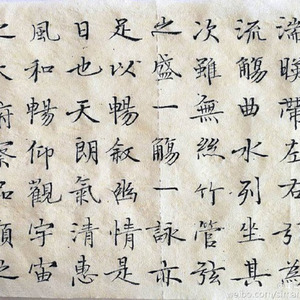 湍暎帶左右引為
流觴曲水列坐其
次雖無絲竹管弦
之盛一觴一詠亦
足以暢叙幽情是
日也天朗氣清惠
風和暢仰觀宇宙
之大俯察品類之